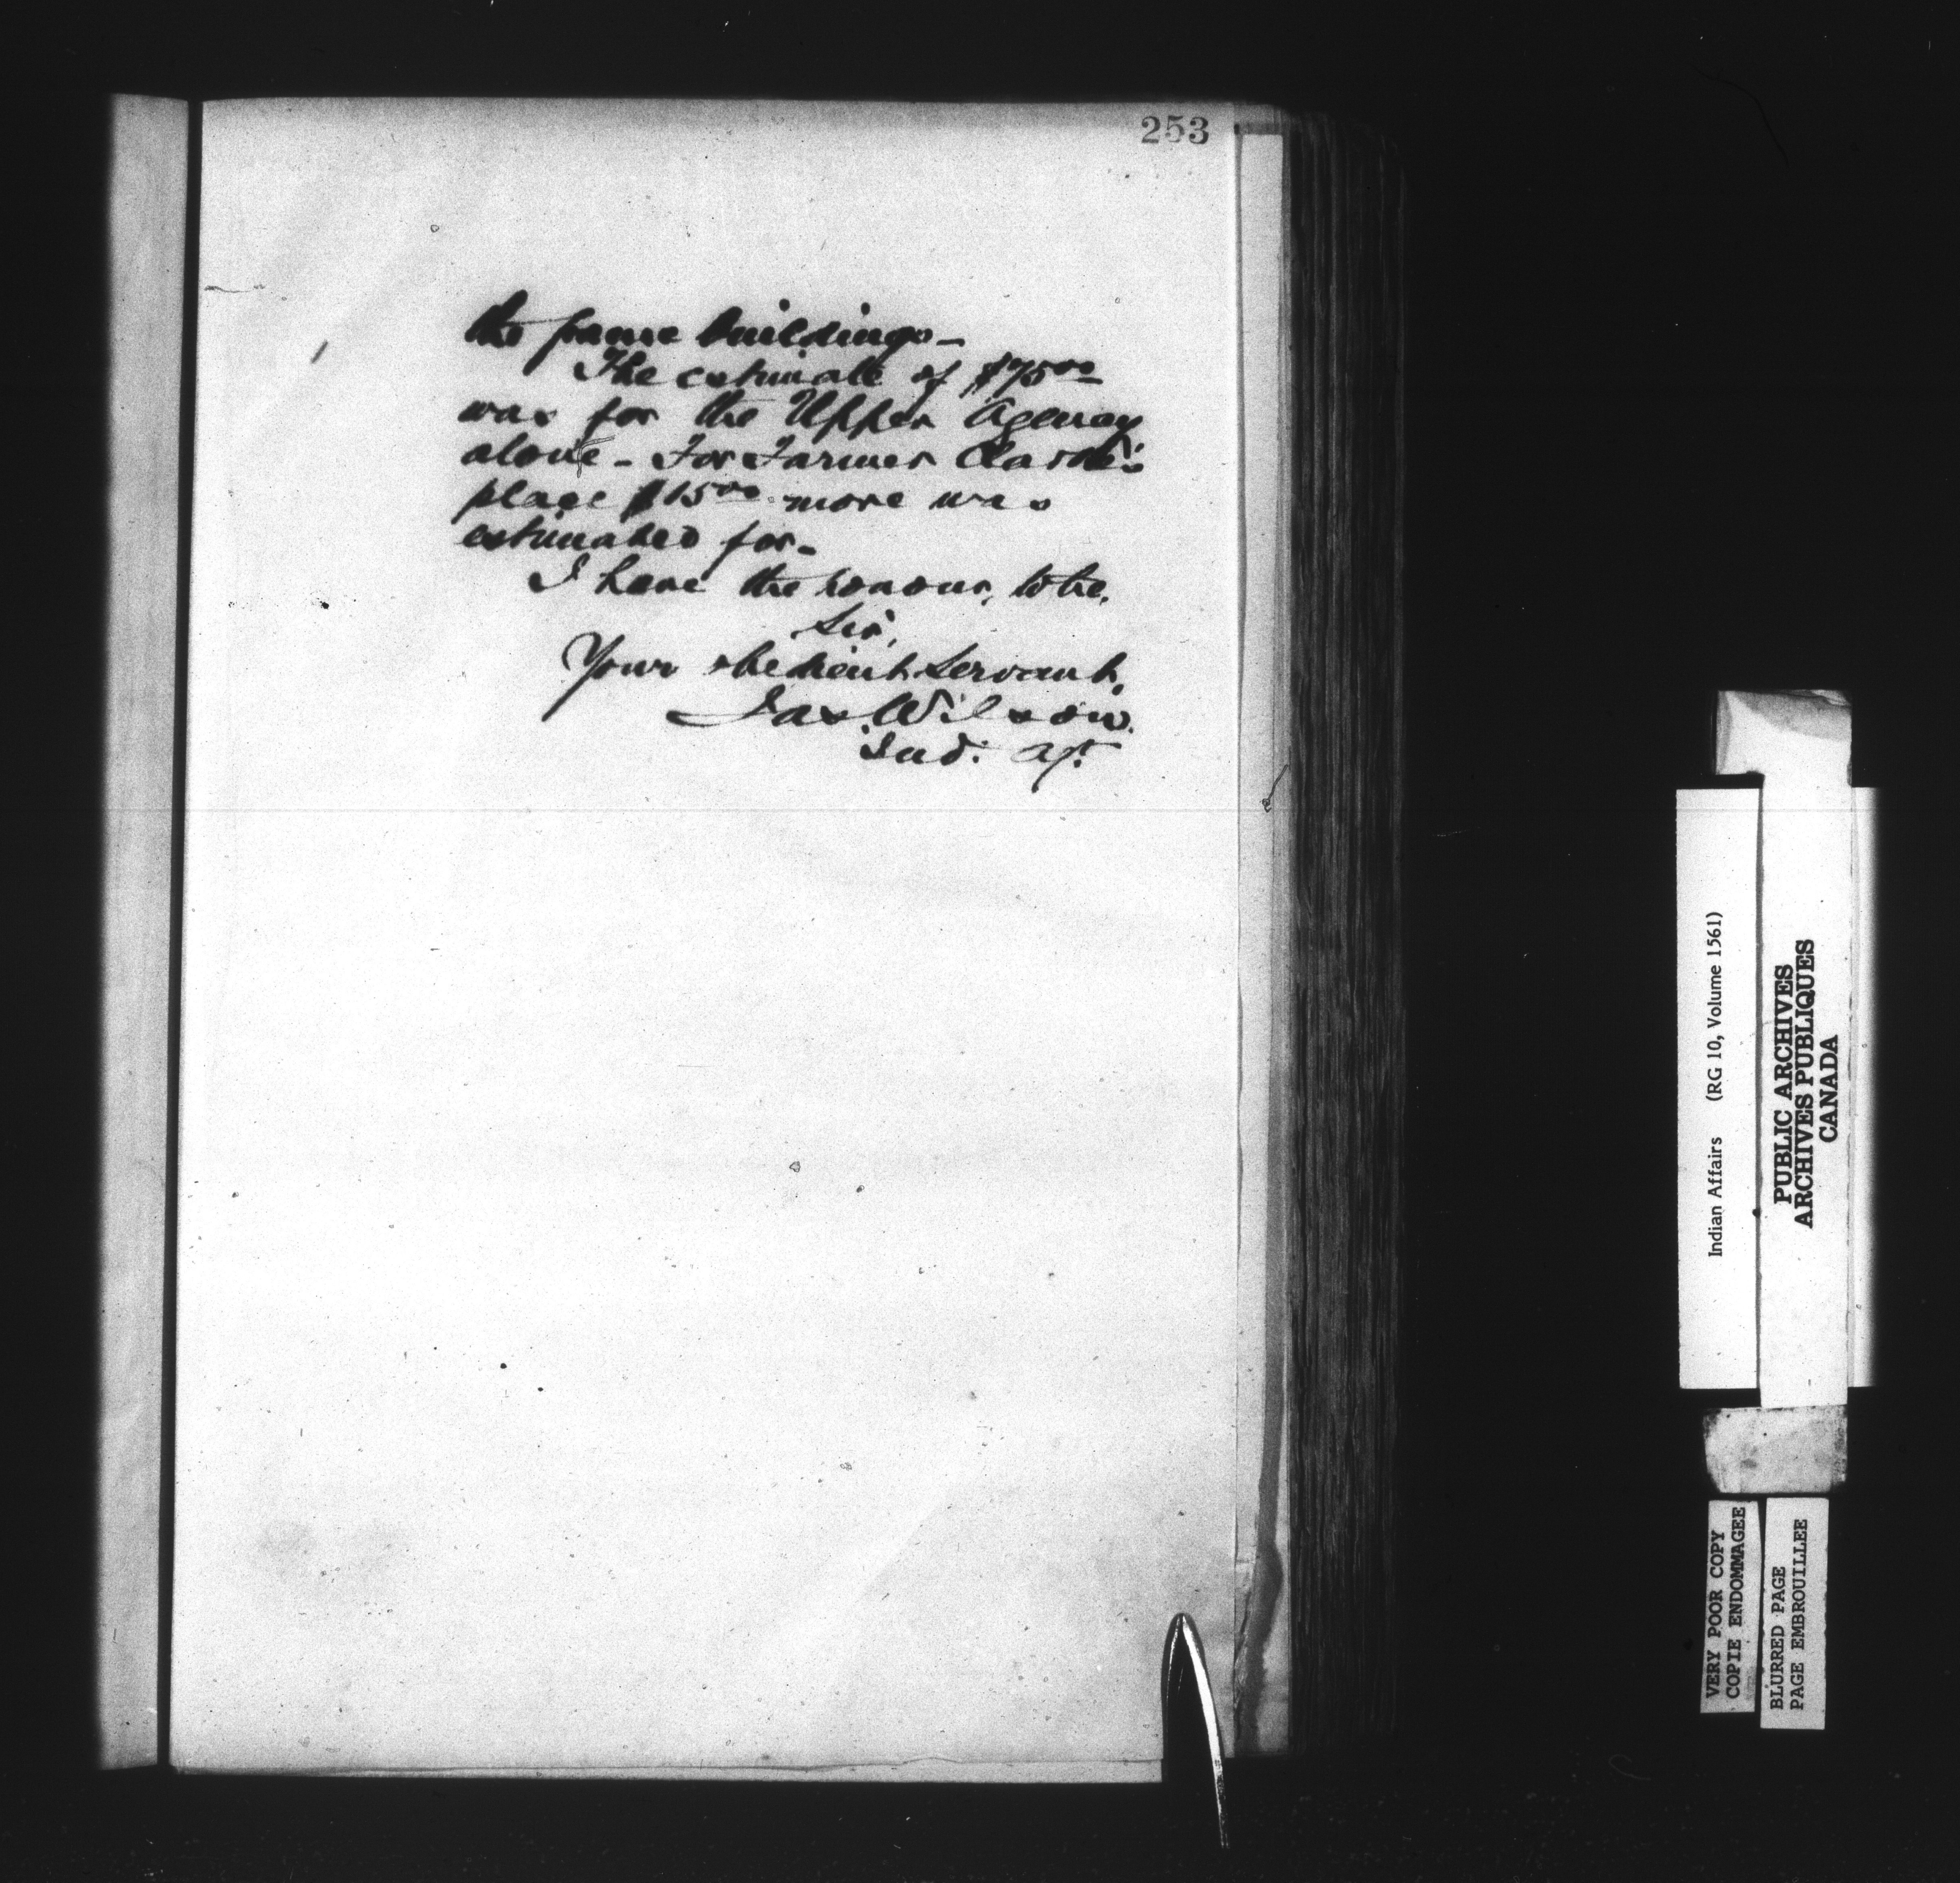 253
the frame buildings-
The estimate of $75.00
was for the Upper Agency
alone - For Farmer Clarke's
place $15.00 more was
estimated for-
I have the honour, to be,
Sir,
Your obedient Servant,
Jas. Wilson.
Ind. Agt.
Indian Affairs (RG 10, Volume 1561)
PUBLIC ARCHIVES
ARCHIVES PUBLIQUES
CANADA
VERY POOR COPY
COPIE ENDOMMAGEE
BLURRED PAGE
PAGE EMBROUILLEE